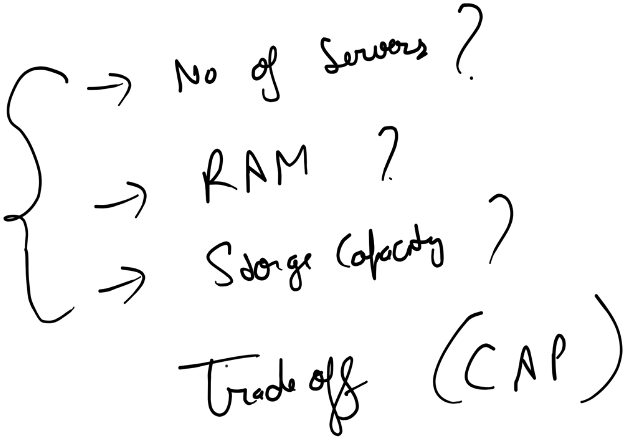 → No of Servers ?
→ RAM ?
→ Storge Capacity ?
Trade off (CAP)